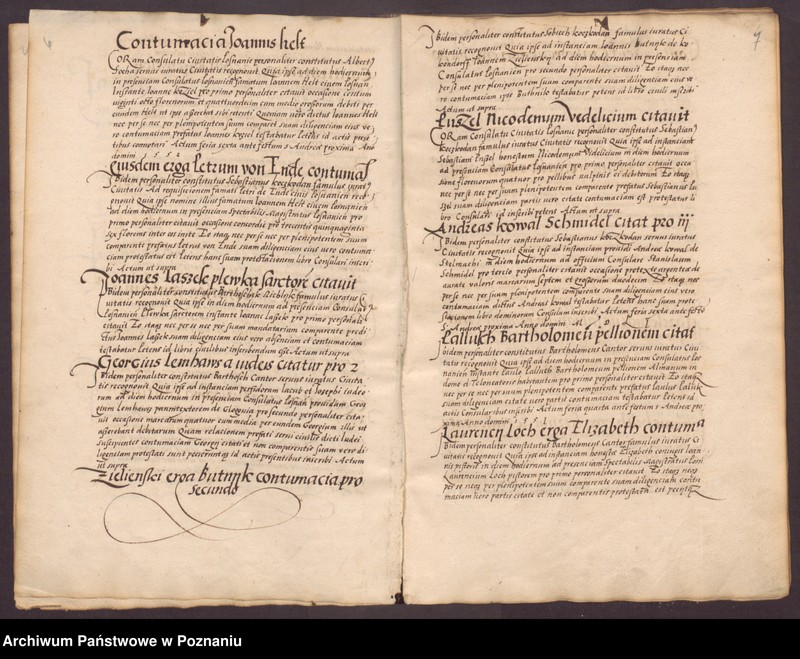 Contumacia Joannis Helt
Coram Consulatu Civitatis Posnanie personaliter constitutus Albert9
Socha servus iuratus Civitatis recognovit Quia ipse ad diem hodiernum
in presentiam Consulatus Posnaniensis famatum Ioannem Helt Civem Posnan
Instante Ioanne Kyzel pro primo personaliter citavit occasione centum
viginti octo florenorum et quattuordecim cum medio grossorum debiti per
eundem Helt ut ips asserebat sibi retenti Quoniam vero dictus Ioannes Helt
nec per se nec per plenipotentem suum comparet suam diligenciam eius ve
ro contumaciam prefatus Ioannes Kyzel testabatur petens id actis presen
tibus connotari Actum feria sexta ante festum S Andreae proxima Anno
domini
Eiusdem erga Petrum von Ende contumat
Ibidem personaliter constitutus Sebastianus Koczkodan famulus iurat9
Civitatis Ad requisicionem famati Petri de Ende Civis Posnanien reco
gnovit Quia ipse nomine illius famatum Ioannem Helt Civem Posnanien
ad diem hodiernum in presenciam Spectabilis Magistratus Posnanien pro
primo personaliter citavit occasione concordie pro trecentis quinquaginta
sex florenis inter eos inite Eo itaque nec per se nec per plenipotentem suum
comparente prefatus Petrus von Ende suam diligenciam eius vero contuma
ciam protestatus est Petens hanc suam protestationem libro Consulari inscri
bi Actum ut supra
Joannes Laszek plewka sartorem citavit
Ibidem personaliter constitutus famulus iuratus Ci
vitatis recognovit Quia ipse in diem hodiernum ad presenciam Consulat9
Posnanien Plewka sartorem instante Ioanne Laszek pro primo personaliter
citavit Eo itaque nec per se nec per suum mandatarium comparente predi
ctus Ioannes Laszek suam diligenciam eius vero absenciam et contumaciam
testabatur Petens id libris civilibus inscribendum esse Actum ut supra
Georgius Lemhaws a iudeis citatur pro 2
Ibidem personaliter constitutus Barthosch Cantor servus iuratus Civita
tis recognovit Quia ipse ad instanciam perfidorum Iacob et Ioseph iudeo
rum ad diem hodiernum in presenciam Consulatus Posnan providum Geor
gium Lemhews pannitextorem de Glogovia pro secundo personaliter cita
vit occasione marcarum quatuor cum media per eundem Georgium illis ut
asserebant debitarum Quam relacionem prefati servi civilis dicti Iudei
susceperunt contumaciam Georgii citati et non comparentis suam vero di
ligenciam protestati sunt petieruntque id actis presentibus inscribi Actum
ut supra
Zielienski erga Butnyk contumacia pro
secundo
7
Ibidem personaliter constitutus Sobiech Koczkodan famulus iuratus Ci
vitatis recognovit Quia ipse ad instanciam Ioannis Butnyk de
Ioannem Zielienski ad diem hodiernum in presenciam
Consulatus Posnanien pro secundo personaliter citavit Eo itaque nec
per se nec per plenipotentem suum comparente suam diligenciam eius ve
ro contumaciam ipse Buthnik testabatur petens id libro civili inscribi
Actum ut supra
Enszel Nicodemum Vedelicium citavit
Coram Consulatu Civitatis Posnanie personaliter constitutus Sebastian9
Koczkodan famulus iuratus Civitatis recognovit Quia ipse ad instanciam
Sebastiani Enszel honestum Nicodemum Vedelicium in diem hodiernum
ad presenciam Consulatus Posnanien pro primo personaliter citavit occa
sione florenorum quatuor pro pellibus vulpinis ei debitorum Eo itaque
nec per se nec per suum plenipotentem comparente prefatus Sebastianus En
szel suam diligenciam partis vero citate contumaciam est protestatus li
bro Consulari id inscribi petens Actum ut supra
Andreas Kowal Schmidel citat pro iij
Ibidem personaliter constitutus Sebastianus Koczkodan servus iuratus
Civitatis recognovit Quia ipse ad instanciam providi Andreae Kowal de
Stelmachi in diem hodiernum ad officium Consulare Stanislaum
Schmidel pro tercio personaliter citavit occasione argentee de
aurate valoris marcarum septem et grossorum duodecim Eo itaque nec
per se nec per suum plenipotentem comparente suam diligenciam eius vero
contumaciam dictus Andreas Kowal testabatur Petens hanc suam prote
stacionem libro dominorum Consulum inscribi Actum feria sexta ante festum
S Andreae proxima Anno domini
Lalliskh Bartholomeum pellionem citat
Ibidem personaliter constitutus Bartholomeus Cantor servus iuratus Civi
tatis recognovit Quia ipse ad diem hodiernum in presenciam Consulatus Pos
nanien Instante Paulo Lalliskh Bartholomeum pellionem Alemanum in
domo a Teloneatoris habitantem pro primo personaliter citavit Eo itaque
nec per se nec per suum plenipotentem comparente prefatus Paulus Lallisk
suam diligenciam citate vero partis contumaciam testabatur Petens id
actis Consularibus inscribi Actum feria quarta ante festum S Andreae pro
xima Anno domini
Laurencii Loch erga Elizabeth contuma
Ibidem personaliter constitutus Bartholomeus Cantor famulus iuratus Ci
vitatis recognovit Quia ipse ad instanciam honeste Elizabeth coniugis Ioan
nis pistoris in diem hodiernum ad presenciam Spectabilis Magistratus Posn
Laurencium Loch pistorem pro primo personaliter citavit Eo itaque nec
per se nec per plenipotentem suum comparente suam diligenciam contu
maciam vero partis citate et non comparentis protestata est petens
Archiwum Państwowe w Poznaniu